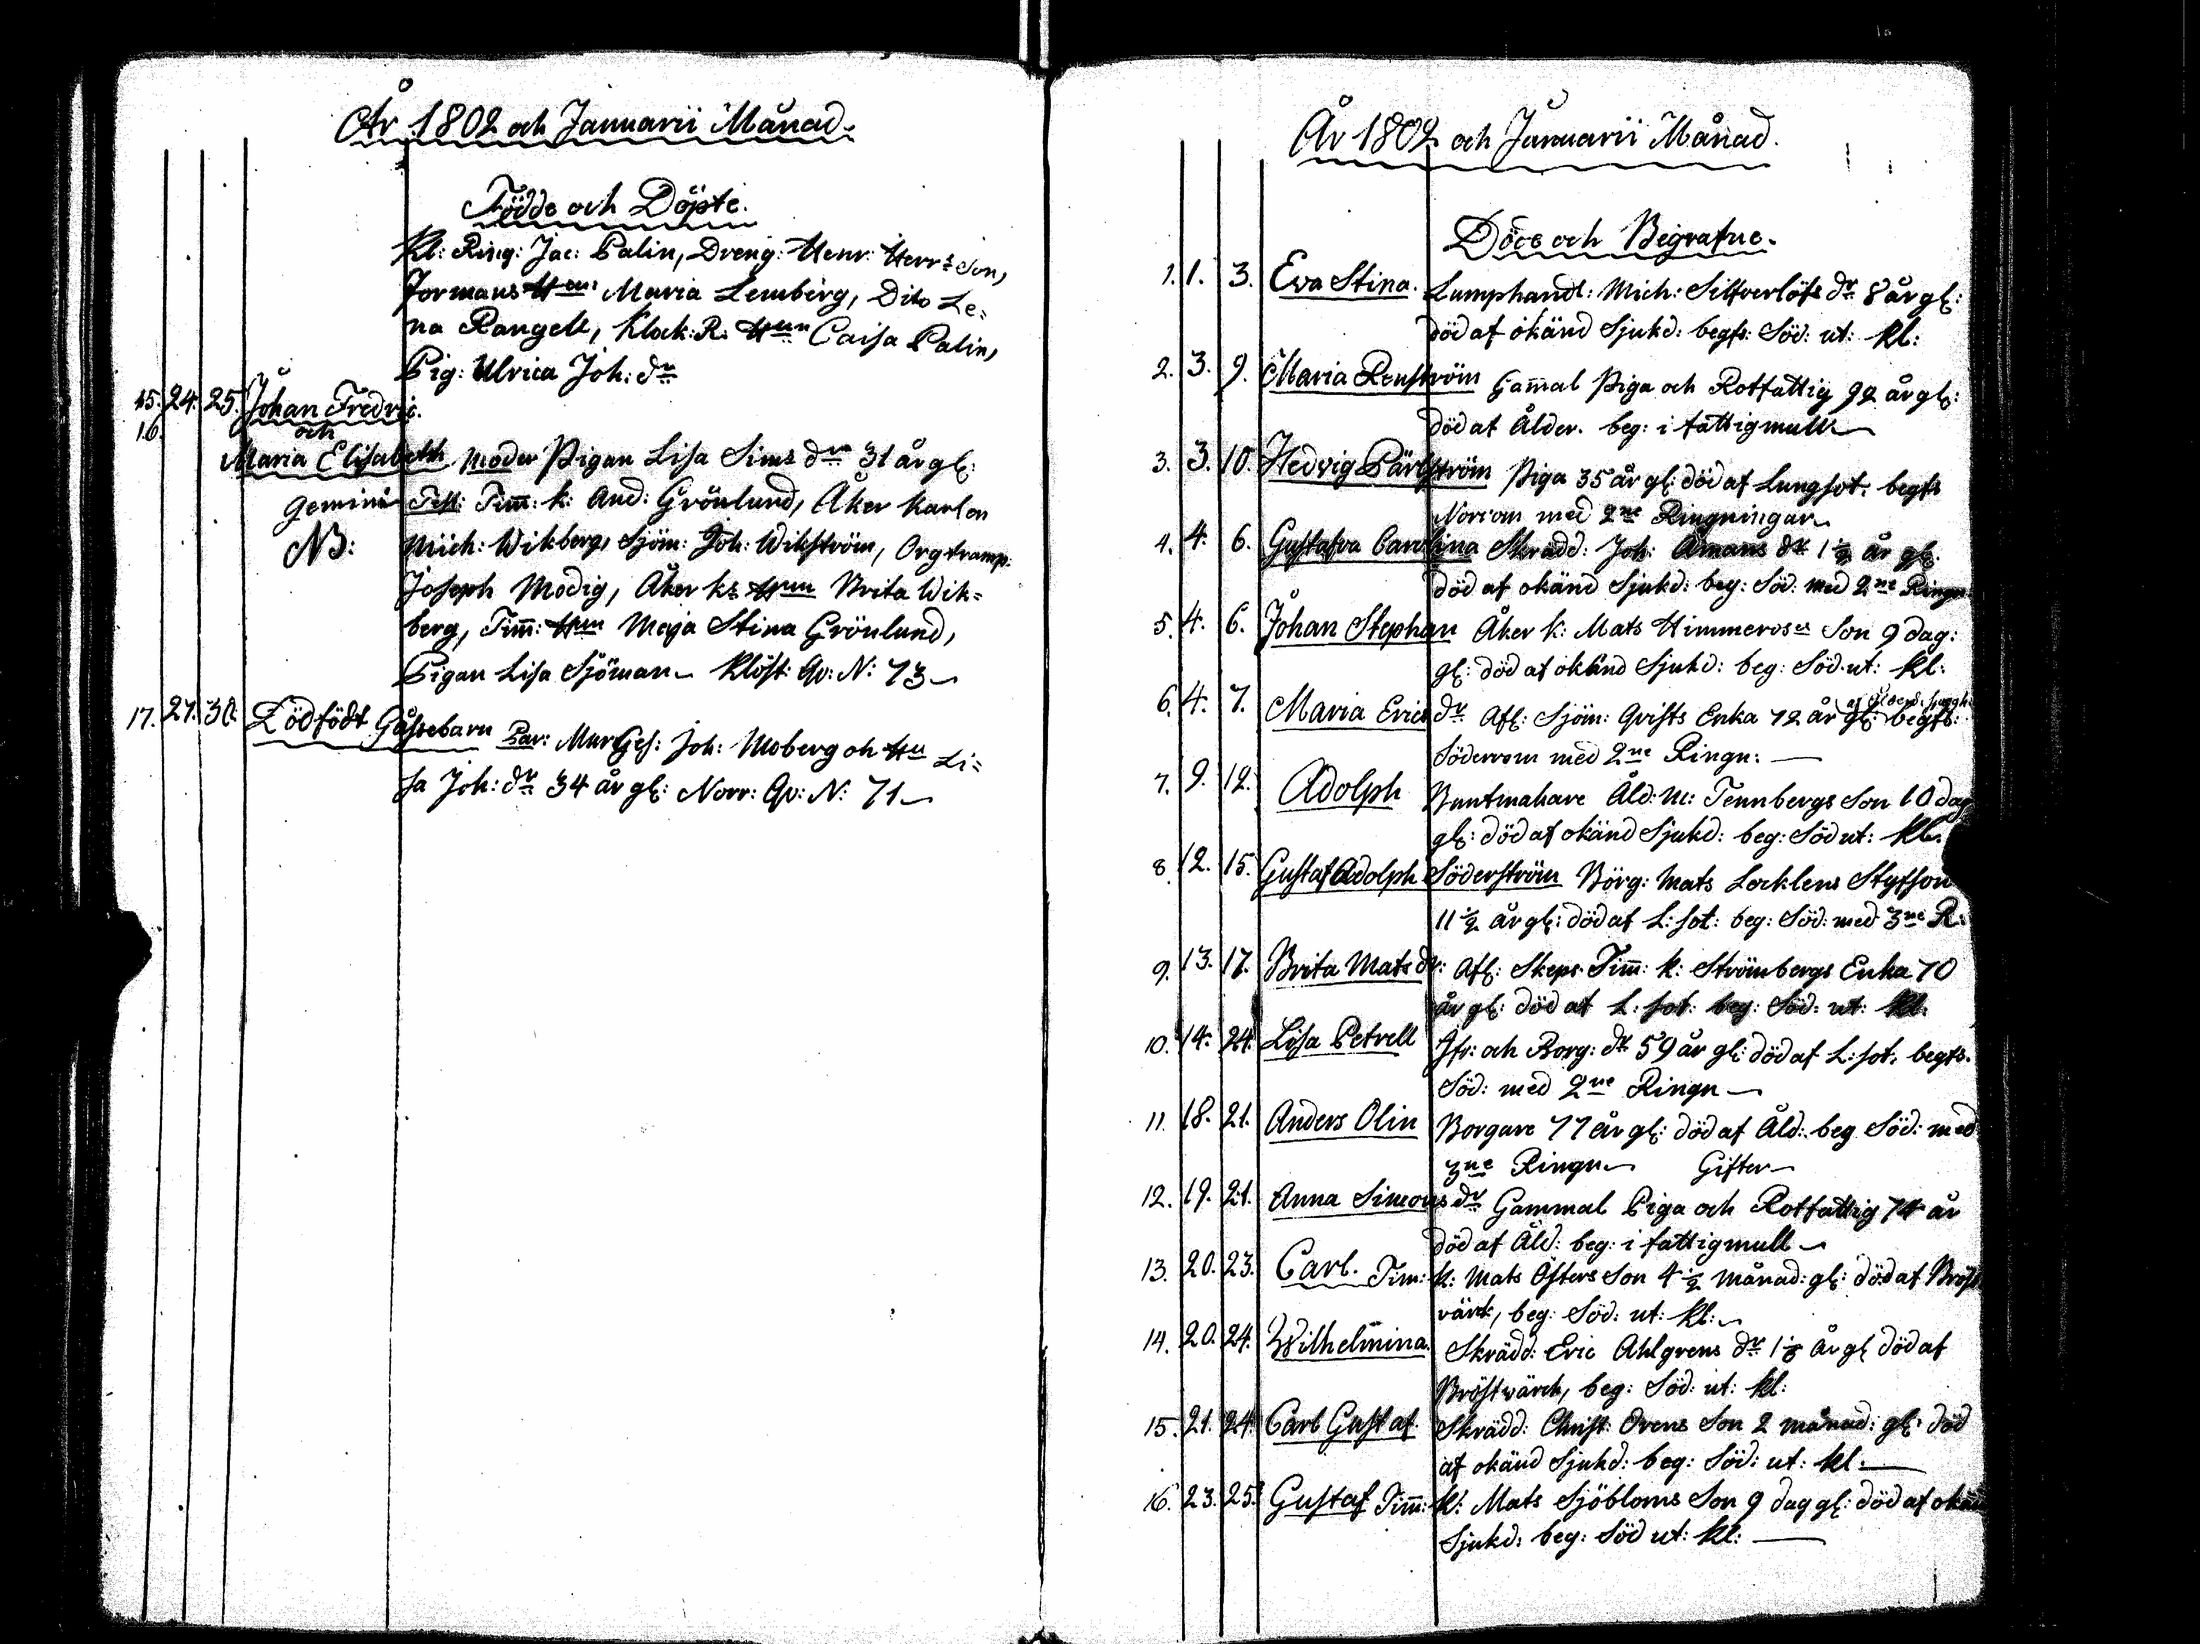 År 1802 och Januarii Månad.
Födde och Döpte.
Kl: Ring: Jac: Palin, Dreng: Henr: Herr:s Son,
Formans Hun: Maria Lemberg, Dito Le=
na Rangell, Klock: R: Hun Caisa Palin,
Pig: Ulrica Joh: dr
15. 24. 25. Johan Fredric.
16. och
Maria Elisabeth moder Pigan Lisa Sims dr 31 år gl:
gemini Test: Timm: k: And: Grönlund, Åker Karlen
NB: Mich: Wikberg, Sjöm: Joh: Wikström, Orgtramp:
Joseph Modig, Åker ks Hun Brita Wik=
berg, Timm: Hun Maja Stina Grönlund,
Pigan Lisa Sjöman. Klöst: Qv: N: 73
17. 27. 30. Dödfödt Gåssebarn Par: Mur Ges: Joh: Moberg oh Hu Li=
sa Joh: dr 34 år gl: Norr: Qv: N: 71
År 1802 och Januarii Månad.
Döde och Begrafne.
1. 1. 3. Eva Stina. Lumphandl: Mich: Silfverlöfs dr 8 år gl:
död af okänd Sjukd: begfs: Söd: ut: kl:
2. 3. 9. Maria Renström Gammal Piga och Rotfattig 92 år gl:
död af Ålder. beg: i fattigmull
3. 3. 10. Hedvig Pärlström Piga 35 år gl: död af Lungsot. begfs
Norrom med 2ne Ringningar
4. 4. 6. Gustafva Carolina Skrädd: Joh: Amans dr 1 1/2 år gl:
död af okänd Sjukd: beg: Söd: med 2ne Ringn
5. 4. 6. Johan Stephan Åker k: Mats Himmeros Son 9 dag:
gl: död af okänd Sjukd: beg: Söd. ut: kl:
6. 4. 7. Maria Erics dr Afl: Sjöm: Qvists Enka 72 år gl: begfs:
Söderrom med 2ne Ringn:
7. 9. 12. Adolph Buntmakare Åld: M: Tennbergs Son 10 dag
gl: död af okänd Sjukd: beg: Söd ut: kl.
8. 12. 15. Gustaf Adolph Söderström Börg: Mats Locklens Styfson
11 1/2 år gl: död af L: sot: beg: Söd: med 3ne R:
9. 13. 17. Brita Mats dr: Afl: Skeps Timm: k: Strömbergs Enka 70
år gl: död af L: sot: beg: Söd: ut: kl.
10. 14. 24. Lisa Petrell Jfr: och Borg: dr 59 år gl: död af L: sot. begfs.
Söd: med 2ne Ringn
11. 18. 21. Anders Olin Borgare 77 år gl: död af Åld: beg Söd: med
3ne Ringn Gifter
12. 19. 21. Anna Simons dr Gammal Piga och Rotfattig 74 år
död af Åld: beg: i fattigmull
13. 20. 23. Carl. Tim: k: Mats Östers Son 4 1/2 månad: gl: död af Bröst
värk, beg: Söd: ut: kl:
14. 20. 24. Wilhelmina. Skrädd: Eric Ahlgrens dr 1 1/8 år gl död af
Bröstvärck, beg: Söd: ut: kl:
15. 21. 24. Carl Gustaf. Skrädd: Christ: Orens Son 2 månad: gl: död
af okänd Sjukd: beg: Söd: ut: kl:
16. 23. 25. Gustaf Timm: k: Mats Sjöbloms Son 9 dag gl: död af okänd
Sjukd: beg: Söd ut: kl: